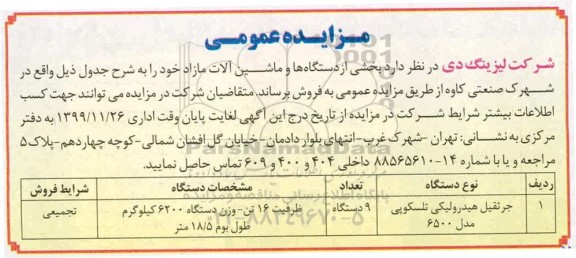 مزایده عمومی
شرکت لیزینگ دی در نظر دارد بخشی از دستگاه‌ها و ماشین آلات مازاد خود را به شرح جدول ذیل واقع در
شهرک صنعتی کاوه از طریق مزایده عمومی به فروش برساند. متقاضیان شرکت در مزایده می توانند جهت کسب
اطلاعات بیشتر شرایط شرکت در مزایده از تاریخ درج این آگهی لغایت پایان وقت اداری ۱۳۹۹/۱۱/۲۶ به دفتر
مرکزی به نشانی: تهران -شهرک غرب-انتهای بلوار دادمان-خیابان گل افشان شمالی-کوچه چهاردهم-پلاک۵
مراجعه و یا با شماره ۱۴-۸۸۵۶۵۶۱۰ داخلی ۴۰۴ و ۴۰۰ و ۶۰۹ تماس حاصل نمایید.
ردیف نوع دستگاه تعداد مشخصات دستگاه شرایط فروش
۱ جرثقیل هیدرولیکی تلسکوپی ۹ دستگاه ظرفیت ۱۶ تن-وزن دستگاه ۶۲۰۰کیلوگرم تجمیعی
مدل ۶۵۰۰ طول بوم ۱۸/۵ متر
ParsNamadData
۰۲۱-۸۸۳۴۹۶۷۰-۵